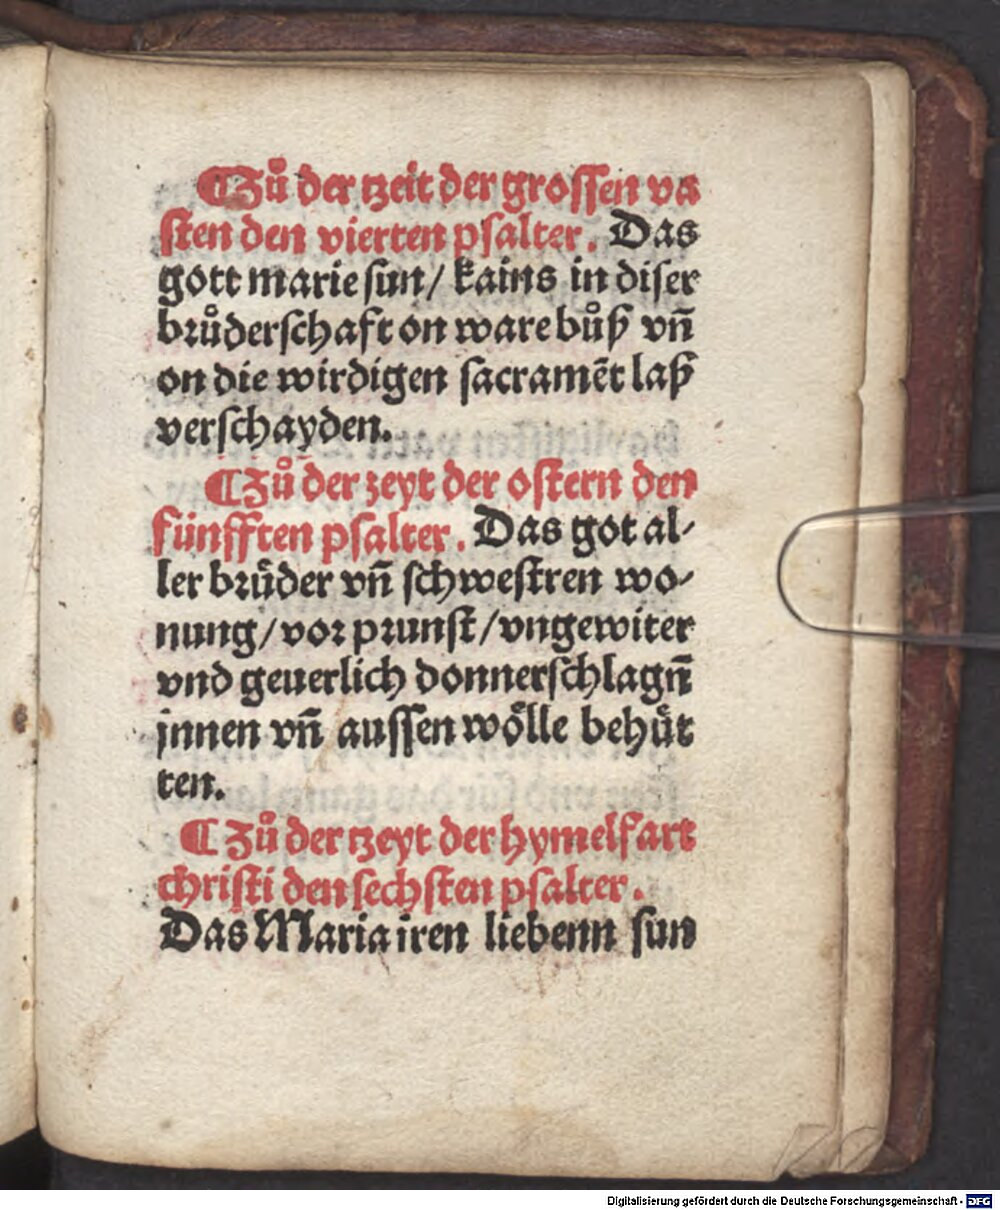 ¶Zuͦ der tzeit der grossen va
sten den vierten psalter. Das
gott marie sun/ kains in diser
bruͦderschaft on ware buͦß vn̄
on die wirdigen sacramēt laß
verschayden.
¶Zuͦ der zeyt der ostern den
fünfften psalter. Das got al⸗
ler bruͤder vn̄ schwestren wo⸗
nung/vor prunst/vngewiter
vnd geuerlich donnerschlagn̄
jnnen vn̄ aussen woͤlle behuͤt
ten.
¶Zuͦ der tzeyt der hymelfart
christi den sechsten psalter.
Das Maria iren liebenn sun
Digitalisierung gefördert durch die Deutsche Forschungsgemeinschaft - DFG